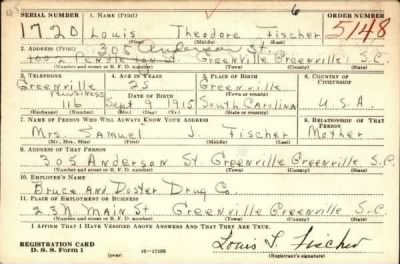 SERIAL NUMBER 1. NAME (Print) 6 ORDER NUMBER
1720 Louis Theodore Fischer 5148
(First) (Middle) (Last)
2. ADDRESS (Print) 305 Anderson St.
Greenville Greenville S.C.
(Number and street or R. F. D. number) (Town) (County) (State)
3. TELEPHONE 4. AGE IN YEARS 5. PLACE OF BIRTH 6. COUNTRY OF CITIZENSHIP
Greenville 25 Greenville
Business DATE OF BIRTH
116 Sept 9 1915 South Carolina U.S.A.
(Exchange) (Number) (Mo.) (Day) (Yr.) (State or country)
7. NAME OF PERSON WHO WILL ALWAYS KNOW YOUR ADDRESS 8. RELATIONSHIP OF THAT PERSON
Mrs. Samuel J. Fischer Mother
(Mr., Mrs., Miss) (First) (Middle) (Last)
9. ADDRESS OF THAT PERSON
305 Anderson St. Greenville Greenville S.C.
(Number and street or R. F. D. number) (Town) (County) (State)
10. EMPLOYER'S NAME
Bruce And Doster Drug Co.
11. PLACE OF EMPLOYMENT OR BUSINESS
23 N. Main St Greenville Greenville S.C.
(Number and street or R. F. D. number) (Town) (County) (State)
I AFFIRM THAT I HAVE VERIFIED ABOVE ANSWERS AND THAT THEY ARE TRUE.
REGISTRATION CARD
D. S. S. Form 1 (over) 16-17105 Louis T. Fischer
(Registrant's signature)